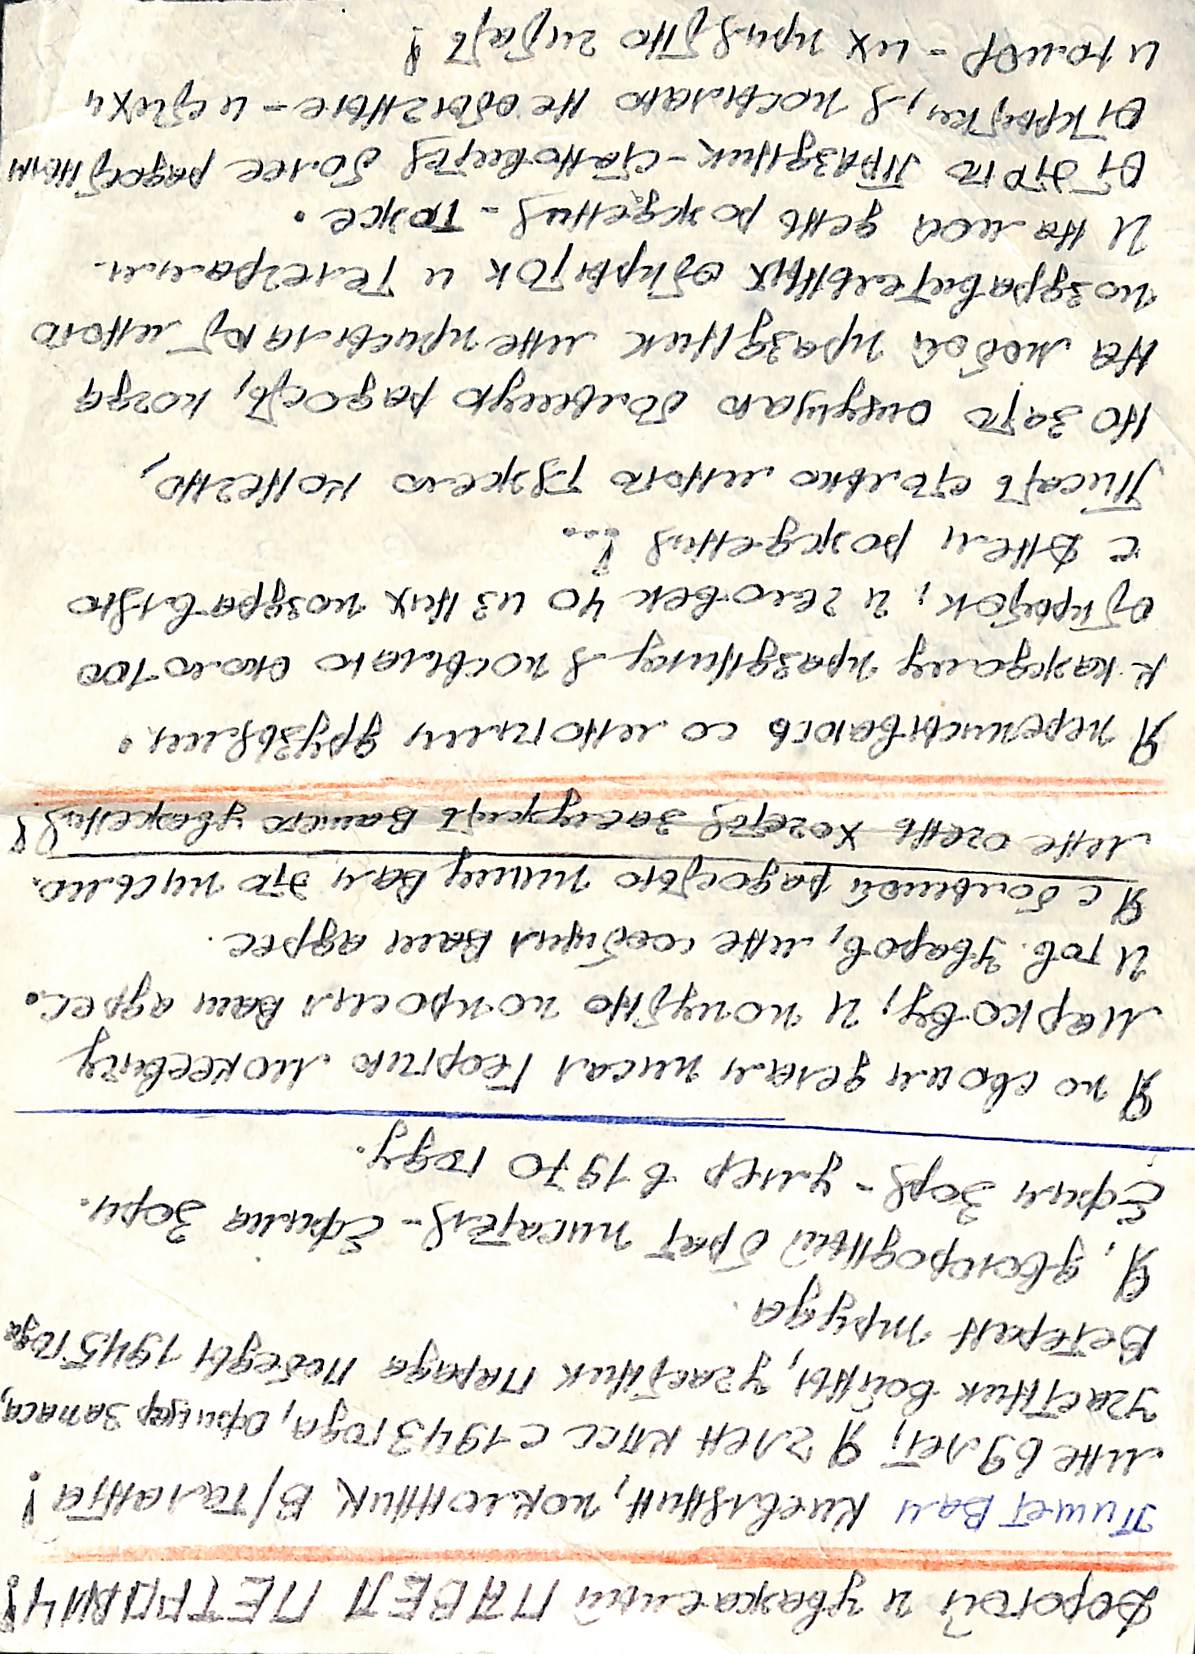 Дорогой и уважаемый ПАВЕЛ ПЕТРОВИЧ!
Пишет Вам киевлянин, поклонник В/таланта!
Мне 69 лет, я член КПСС с 1943 года, офицер запаса,
участник войны, участник парада Победы 1945 года
Ветеран труда.
Я, двоюродный брат писателя - Ефима Зори.
Ефим Зоря - умер в 1970 году.
Я по своим делам писал Георгию Мокеевичу
Маркову, и попутно попросил Ваш адрес.
И тов. Уваров, мне сообщил Ваш адрес.
Я с большой радостью пишу Вам это письмо.
Мне очень хочется заслужить Вашего уважения!
Я переписываюсь со многими друзьями.
К каждому празднику я посылаю около 100
открыток, и человек 40 из них поздравляю
с Днем рождения!...
Писать столько много тяжело конечно,
но зато ощущаю большую радость, когда
на любой праздник мне присылают много
поздравительных открыток и телеграмм.
И на мой день рождения - тоже.
От этого праздник - становится более радостным
Открытки, я посылаю не обычные - и стихи
и юмор - их приятно читать!